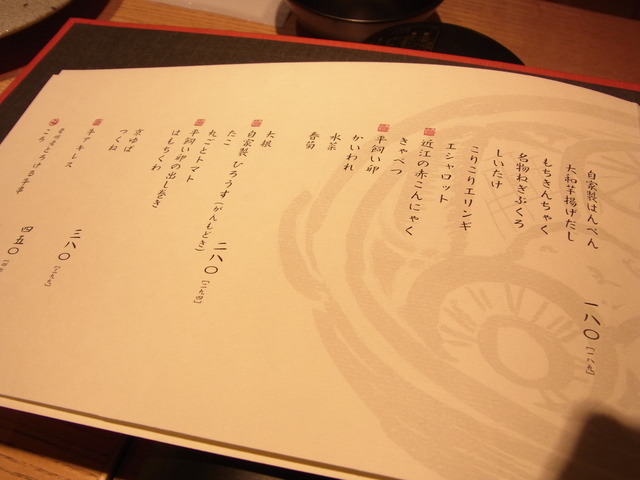 自家製はんぺん 一八〇 [一八九]
大和芋揚げだし
もちきんちゃく
名物ねぎぶくろ
しいたけ
こりこりエリンギ
エシャロット
近江の赤こんにゃく
きゃべつ
平飼い卵
かいわれ
水菜
春菊
大根
自家製 ひろうす(がんもどき) 二八〇 [二九四]
たこ
丸ごとトマト
平飼い卵の出し巻き
はもちくわ
京ゆば
つくね
牛アキレス 三八〇 [三九九]
とろける牛串 四五〇